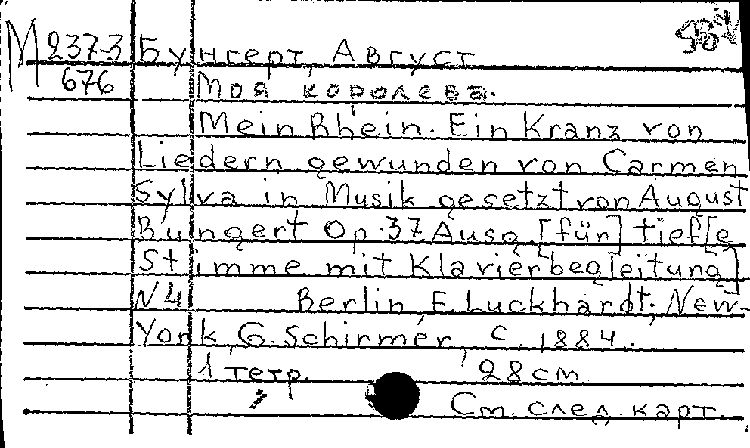 М 237-3 Бунгерт, Август
676 Моя королева.
Mein Rhein. Ein Kranz von
Liedern gewunden von Carmen
Sylva in Musik gesetzt von August
Bungert Op. 37 Ausg. [für] tief[e
Stimme mit Klavierbegleitung]
N 4 Berlin, E. Luckhardt; New-
York, G. Schirmer, c. 1884.
1 тетр. 28 см
См. след. карт.